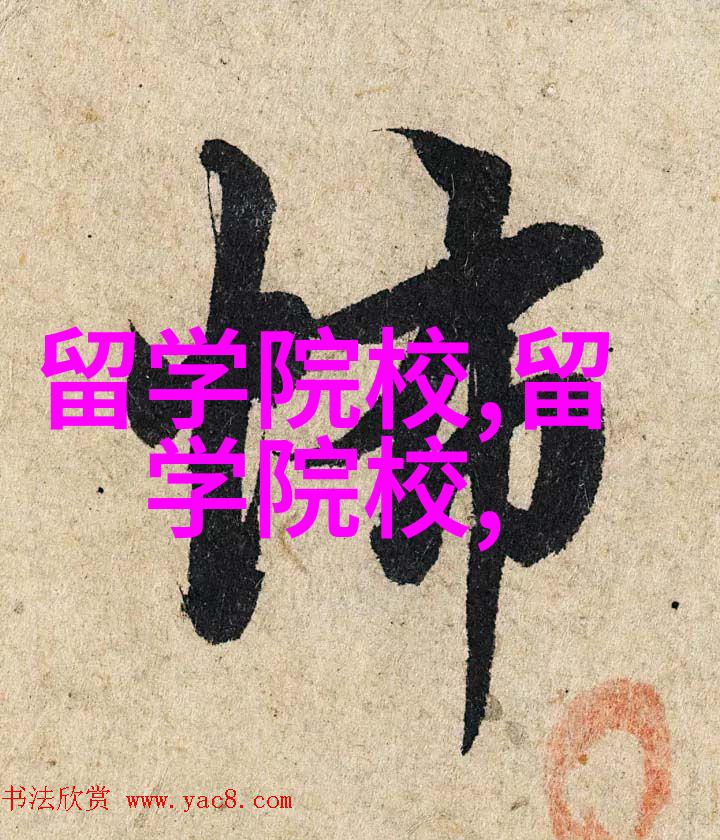 留学院校,留
学院校,
书法欣赏 www.yac8.com